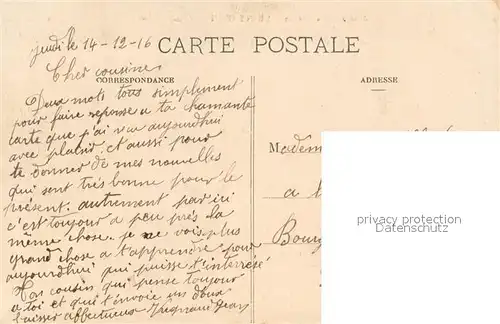 jeudi le 14-12-16
CARTE POSTALE
Cher cousine
CORRESPONDANCE
ADRESSE
Deux mots tous simplement
pour faire reponse a ta charmante
carte que j'ai reçu aujourdhui
avec plaisir et aussi pour
te donner de mes nouvelles
qui sont très bonne pour le
présent. autrement par ici
c'est toujour a peu près la
même chose. je ne vois plus
grand chose a t'apprendre pour
aujourdhui qui puisse t'interresé
Ton cousin qui pense toujour
a toi et qui t'envoie un doux
baisser affectueux Jean
Madem
a
Bourg
privacy protection
Datenschutz